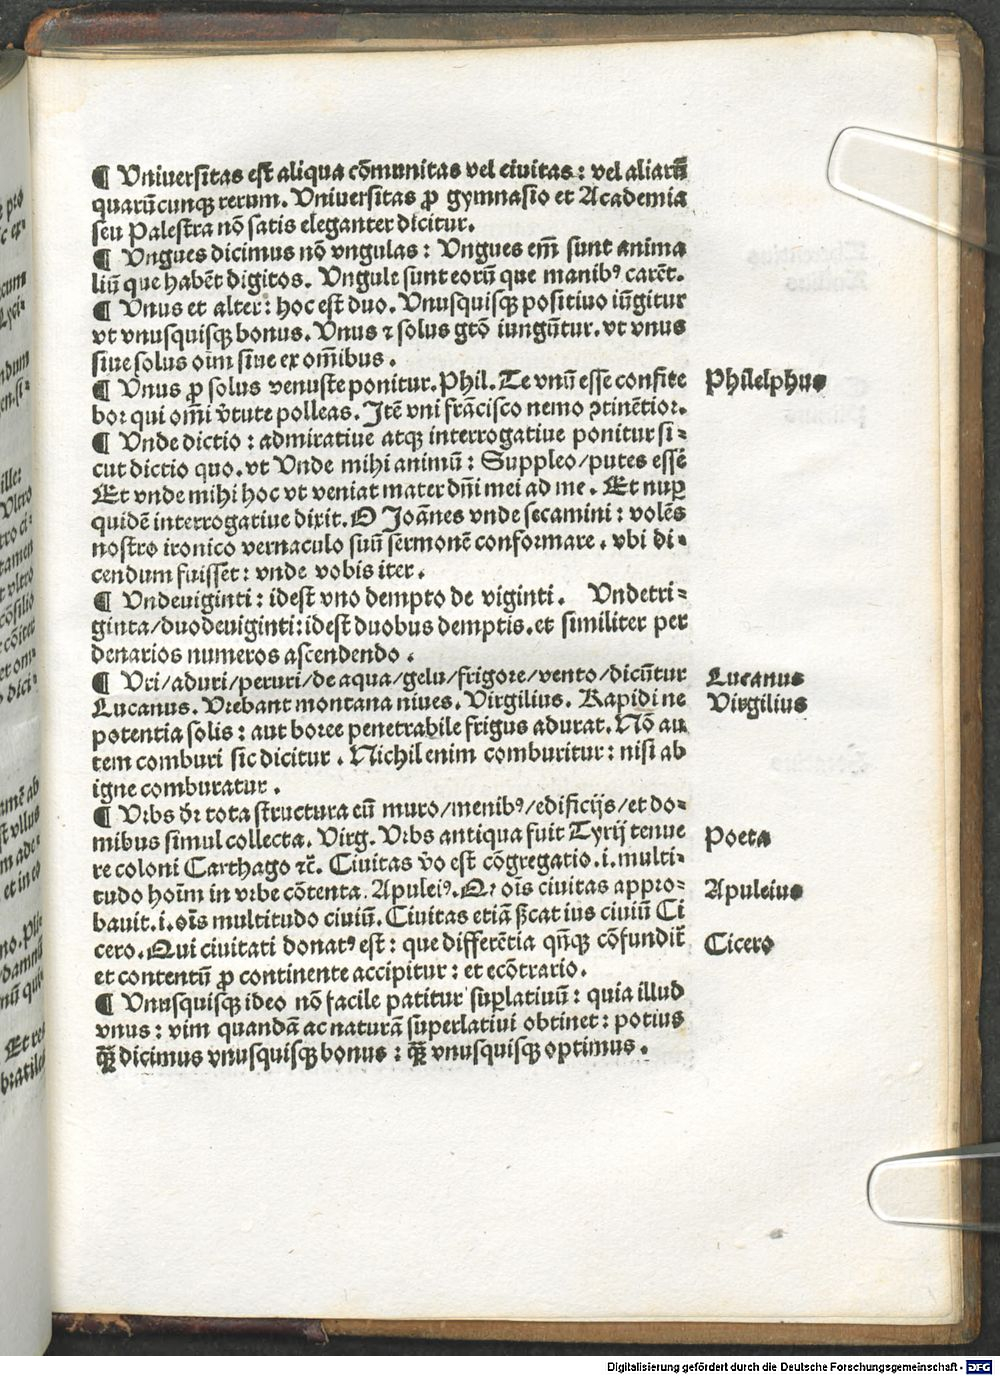 ¶ Vniuersitas est aliqua cõmunitas vel ciuitas: vel aliarũ
quarũcunqꝫ rerum. Vniuersitas ꝓ gymnasio et Academia
seu Palestra nõ satis eleganter dicitur.
¶ Vngues dicimus nõ vngulas: Vngues em̃ sunt anima
liũ que habẽt digitos. Vngule sunt eorũ que manibꝰ carẽt.
¶ Vnus et alter: hoc est duo. Vnusquisqꝫ positiuo iũgitur
vt vnusquisqꝫ bonus. Vnus ⁊ solus gtõ iungũtur. vt vnus
siue solus oim̃ siue ex om̃ibus.
¶ Vnus ꝓ solus venuste ponitur. Phil. Te vnũ esse confite
bor qui om̃i v̾tute polleas. Itẽ vni frãcisco nemo ꝯtinẽtior.
Philelphus
¶ Vnde dictio: admiratiue atqꝫ interrogatiue ponitur si⸗
cut dictio quo. vt Vnde mihi animũ: Suppleo/putes esse
Et vnde mihi hoc vt veniat mater dñi mei ad me. Et nuꝑ
quidẽ interrogatiue dixit. O Joãnes vnde secamini: volẽs
nostro ironico vernaculo suũ sermonẽ conformare. vbi di⸗
cendum fuisset: vnde vobis iter.
¶ Vndeuiginti: idest vno dempto de viginti. Vndetri⸗
ginta/duodeuiginti: idest duobus demptis. et similiter per
denarios numeros ascendendo.
¶ Vri/aduri/peruri/de aqua/gelu/frigore/vento/dicũtur
Lucanus
Lucanus. Vrebant montana niues. Virgilius. Rapidi ne
Virgilius
potentia solis: aut boree penetrabile frigus adurat. Nõ au
tem comburi sic dicitur. Nichil enim comburitur: nisi ab
igne comburatur.
¶ Vrbs dr̃ tota structura cũ muro/menibꝰ/edificijs/et do⸗
mibus simul collecta. Virg. Vrbs antiqua fuit Tyrij tenue
Poeta
re coloni Carthago ⁊c̃. Ciuitas v̾o est cõgregatio. i. multi⸗
tudo hoim̃ in vrbe cõtenta. Apuleiꝰ. Qꝛ ois̃ ciuitas appro⸗
Apuleius
bauit. i. ois̃ multitudo ciuiũ. Ciuitas etiã ẜcat ius ciuiũ Ci
cero. Qui ciuitati donatꝰ est: que differẽtia qñqꝫ cõfundit̃
Cicero
et contentũ ꝓ continente accipitur: et ecõtrario.
¶ Vnusquisqꝫ ideo nõ facile patitur suꝑlatiuũ: quia illud
vnus: vim quandã ac naturã superlatiui obtinet: potius
qꝫ̃ dicimus vnusquisqꝫ bonus: qꝫ̃ vnusquisqꝫ optimus.
Digitalisierung gefördert durch die Deutsche Forschungsgemeinschaft - DFG